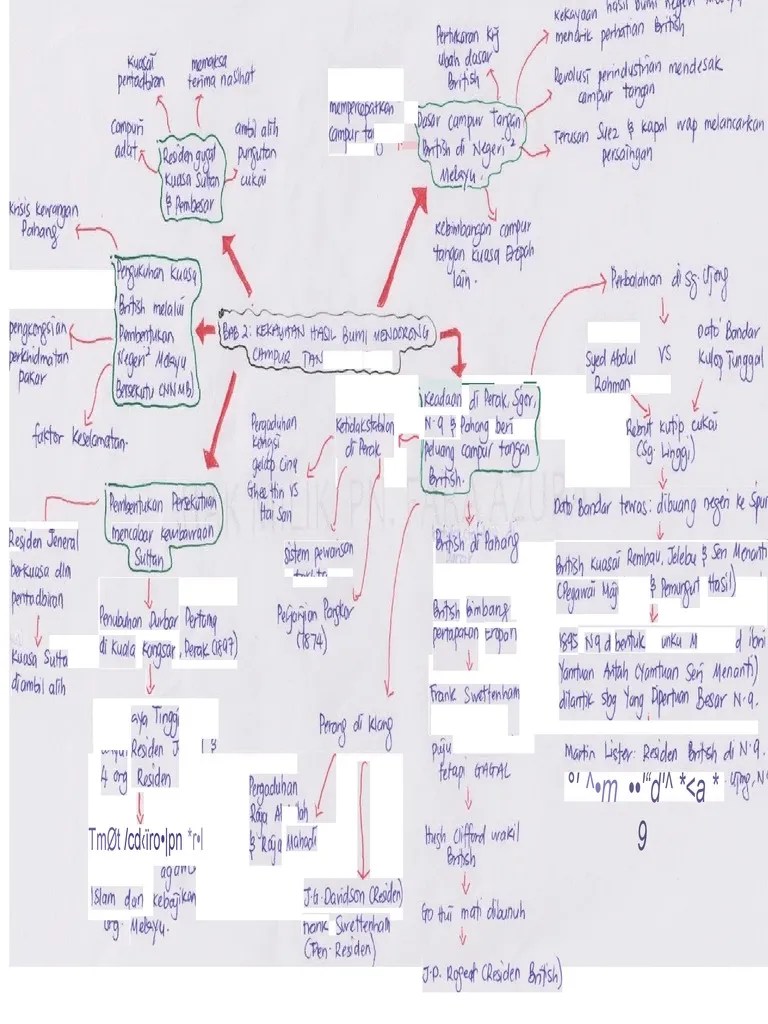 Kekayaan hasil bumi negeri
menarik perhatian British
Pertukaran Krj
ubah dasar
British
Revolusi perindustrian mendesak
campur tangan
Terusan Suez & kapal wap melancarkan
persaingan
mempercepatkan
campur
Dasar campur tangan
British di Negeri²
Melayu.
Kebimbangan campur
tangan kuasa Eropah
lain.
Kuasai
pentadbiran
memaksa
terima nasihat
Campuri
adat
ambil alih
pungutan
cukai
Residen gugat
Kuasa Sultan
& Pembesar
Krisis Kewangan
Pahang
Pengukuhan Kuasa
British melalui
Pembentukan
Negeri² Melayu
Bersekutu (NNMB)
pengkongsian
perkhidmatan
pakar
faktor Keselamatan.
BAB 2: KEKAYAAN HASIL BUMI MENDORONG
CAMPUR TAN
Perbalahan di Sg. Ujong
Syed Abdul
Rahman
VS
Dato' Bandar
Kulop Tunggal
Rebut kutip cukai
(Sg. Linggi)
Dato' Bandar tewas: dibuang negeri ke Spur
British Kuasai Rembau, Jelebu & Seri Menanti
(Pegawai Maj & Pemungut Hasil)
1895 N9 dbentuk unku M d ibni
Yamtuan Antah (Yamtuan Seri Menanti)
dilantik sbg Yang Dipertuan Besar N.9.
Martin Lister: Residen British di N.9.
Ujong, N
9
Keadaan di Perak, S'gor,
N.9 & Pahang beri
peluang campur tangan
British.
Ketidakstabilan
di Perak
Pergaduhan
kongsi
gelap Cina
Ghee Hin VS
Hai San
Sistem pewarisan
Perjanjian Pangkor
(1874)
Perang di Klang
Pergaduhan
Raja
& Raja Mahadi
J.G. Davidson (Residen)
Frank Swettenham
(Pen. Residen)
British di Pahang
British bimbang
pertapakan Eropah
Frank Swettenham
puju
tetapi GAGAL
Hugh Clifford wakil
British
Go Hui mati dibunuh
J.P. Rodger (Residen British)
Pembentukan Persekutuan
mencabar kewibawaan
Sultan
Residen Jeneral
berkuasa dlm
pentadbiran
Kuasa Sulta
diambil alih
Penubuhan Durbar Pertama
di Kuala Kangsar, Perak (1897)
aya Tinggi
Residen J
4 org Residen
agama
Islam dan kebajikan
org. Melayu.